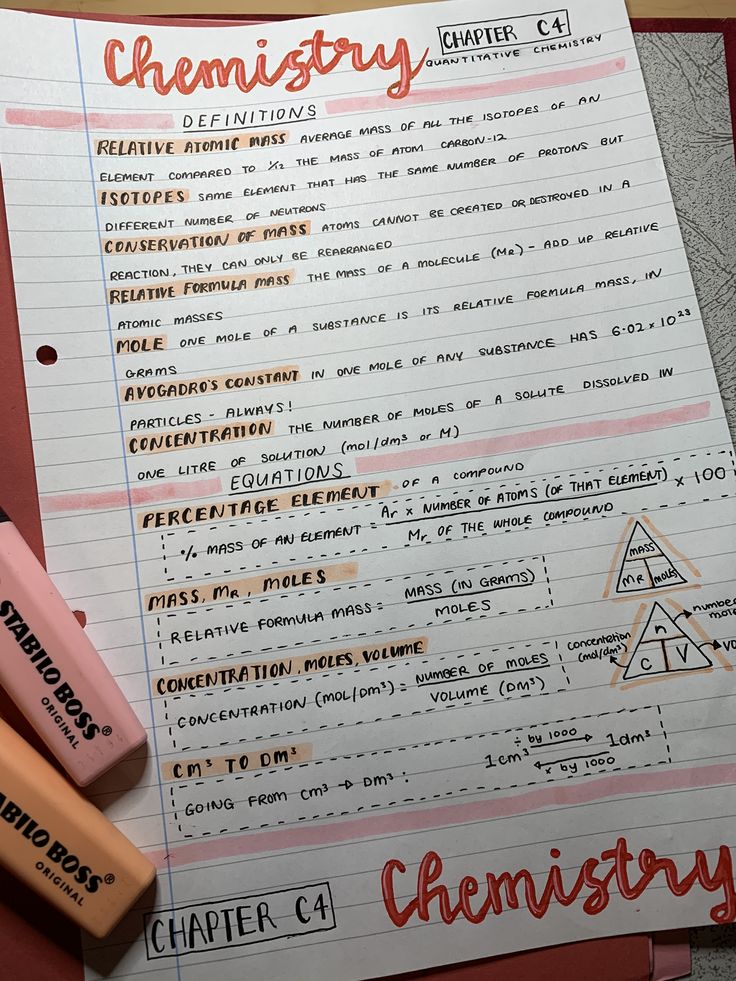 Chemistry
CHAPTER C4
QUANTITATIVE CHEMISTRY
DEFINITIONS
RELATIVE ATOMIC MASS AVERAGE MASS OF ALL THE ISOTOPES OF AN
ELEMENT COMPARED TO 1/12 THE MASS OF ATOM CARBON-12
ISOTOPES SAME ELEMENT THAT HAS THE SAME NUMBER OF PROTONS BUT
DIFFERENT NUMBER OF NEUTRONS
CONSERVATION OF MASS ATOMS CANNOT BE CREATED OR DESTROYED IN A
REACTION, THEY CAN ONLY BE REARRANGED
RELATIVE FORMULA MASS THE MASS OF A MOLECULE (MR) - ADD UP RELATIVE
ATOMIC MASSES
MOLE ONE MOLE OF A SUBSTANCE IS ITS RELATIVE FORMULA MASS, IN
GRAMS
AVOGADRO'S CONSTANT IN ONE MOLE OF ANY SUBSTANCE HAS 6.02 x 10²³
PARTICLES - ALWAYS!
CONCENTRATION THE NUMBER OF MOLES OF A SOLUTE DISSOLVED IN
ONE LITRE OF SOLUTION (mol/dm³ or M)
EQUATIONS
PERCENTAGE ELEMENT OF A COMPOUND
% MASS OF AN ELEMENT = Ar x NUMBER OF ATOMS (OF THAT ELEMENT) x 100
Mr OF THE WHOLE COMPOUND
MASS, MR, MOLES
RELATIVE FORMULA MASS = MASS (IN GRAMS)
MOLES
MASS
MR
MOLES
CONCENTRATION, MOLES, VOLUME
CONCENTRATION (MOL/DM³) = NUMBER OF MOLES
VOLUME (DM³)
concentration
(mol/dm³)
n
C V
number
CM³ TO DM³
GOING FROM CM³ → DM³:
÷ by 1000
1cm³ 1dm³
x by 1000
CHAPTER C4
Chemistry
STABILO BOSS®
ORIGINAL
ABILO BOSS®
ORIGINAL